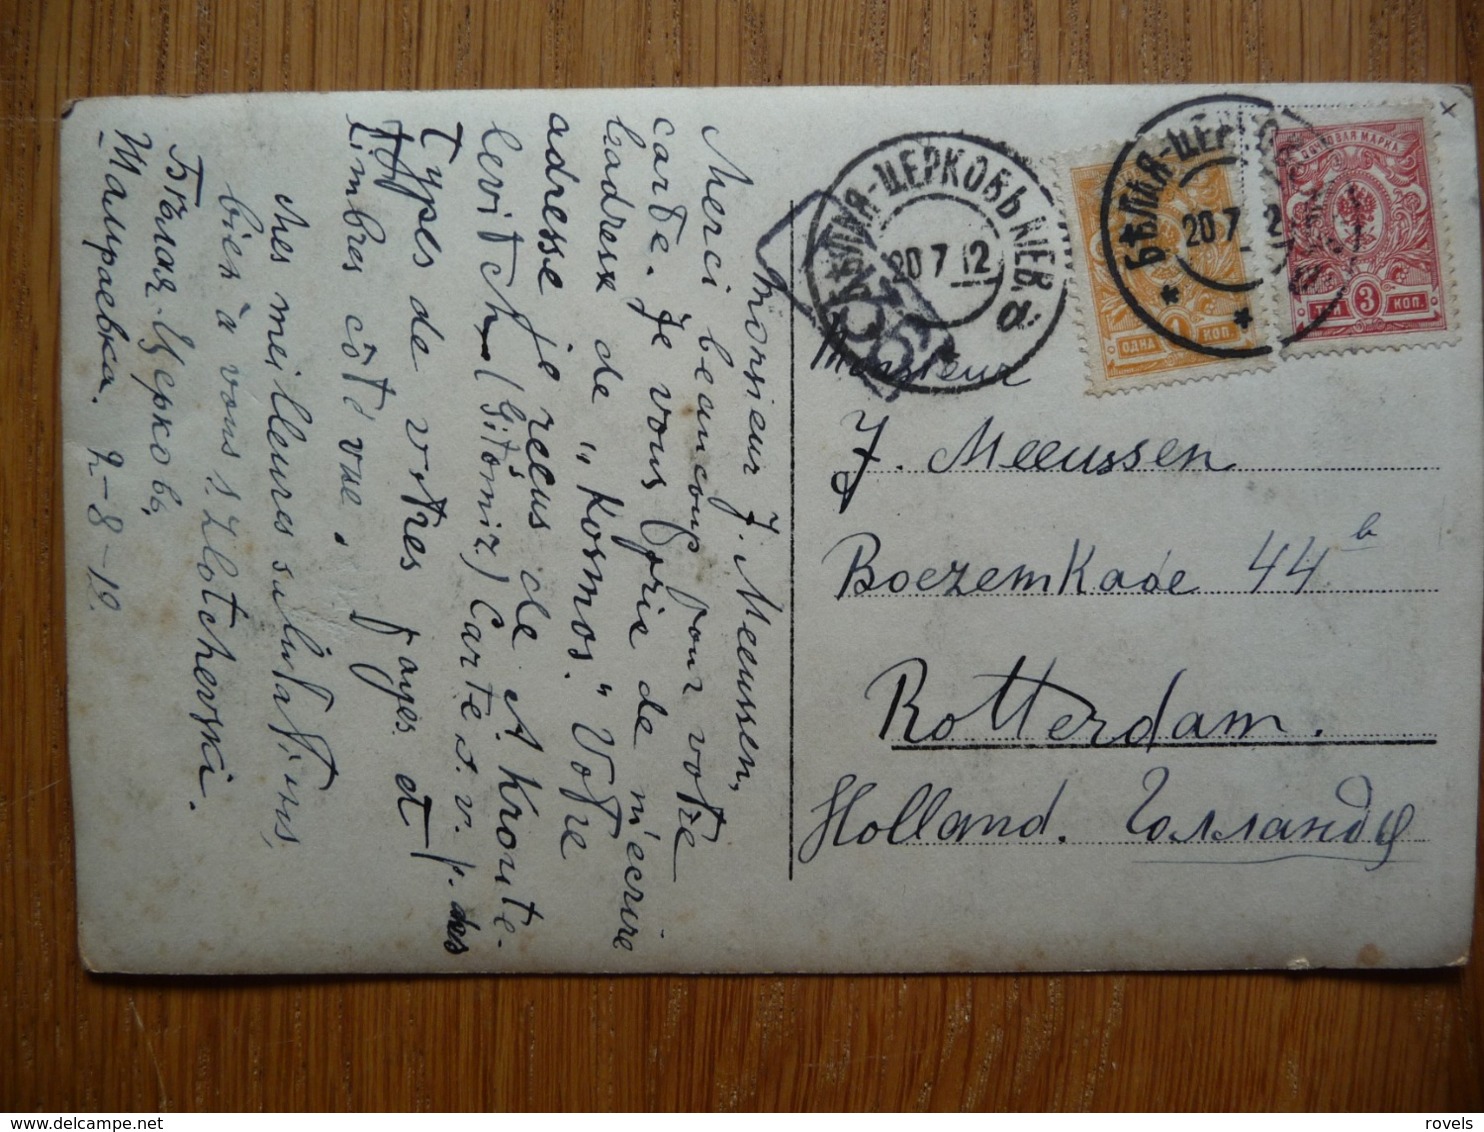 Monsieur J. Meeussen,
Merci beaucoup pour votre
carte. Je vous prie de m'ecrire
l'adresse de „Kosmos." Votre
adresse je recus de A Kroute-
levitch (Gitomir) Cartes. v. p. des
Types de votres payes et
Timbres côté vue.
Mes meilleures salutations,
bien à vous s. Zlotchevski.
Бѣлая-Церковь,
Шамраевка. 2-8-12.
БѢЛАЯ-ЦЕРКОВЬ КІЕВ.
20 7 12
а
БѢЛАЯ-ЦЕР
20 7 12
ПОЧТОВАЯ МАРКА
ОДНА 1 КОП.
ТРИ 3 КОП.
Monsieur
J. Meeussen
Boezemkade 44 b
Rotterdam.
Holland. Голландія
delcampe.net
rovels